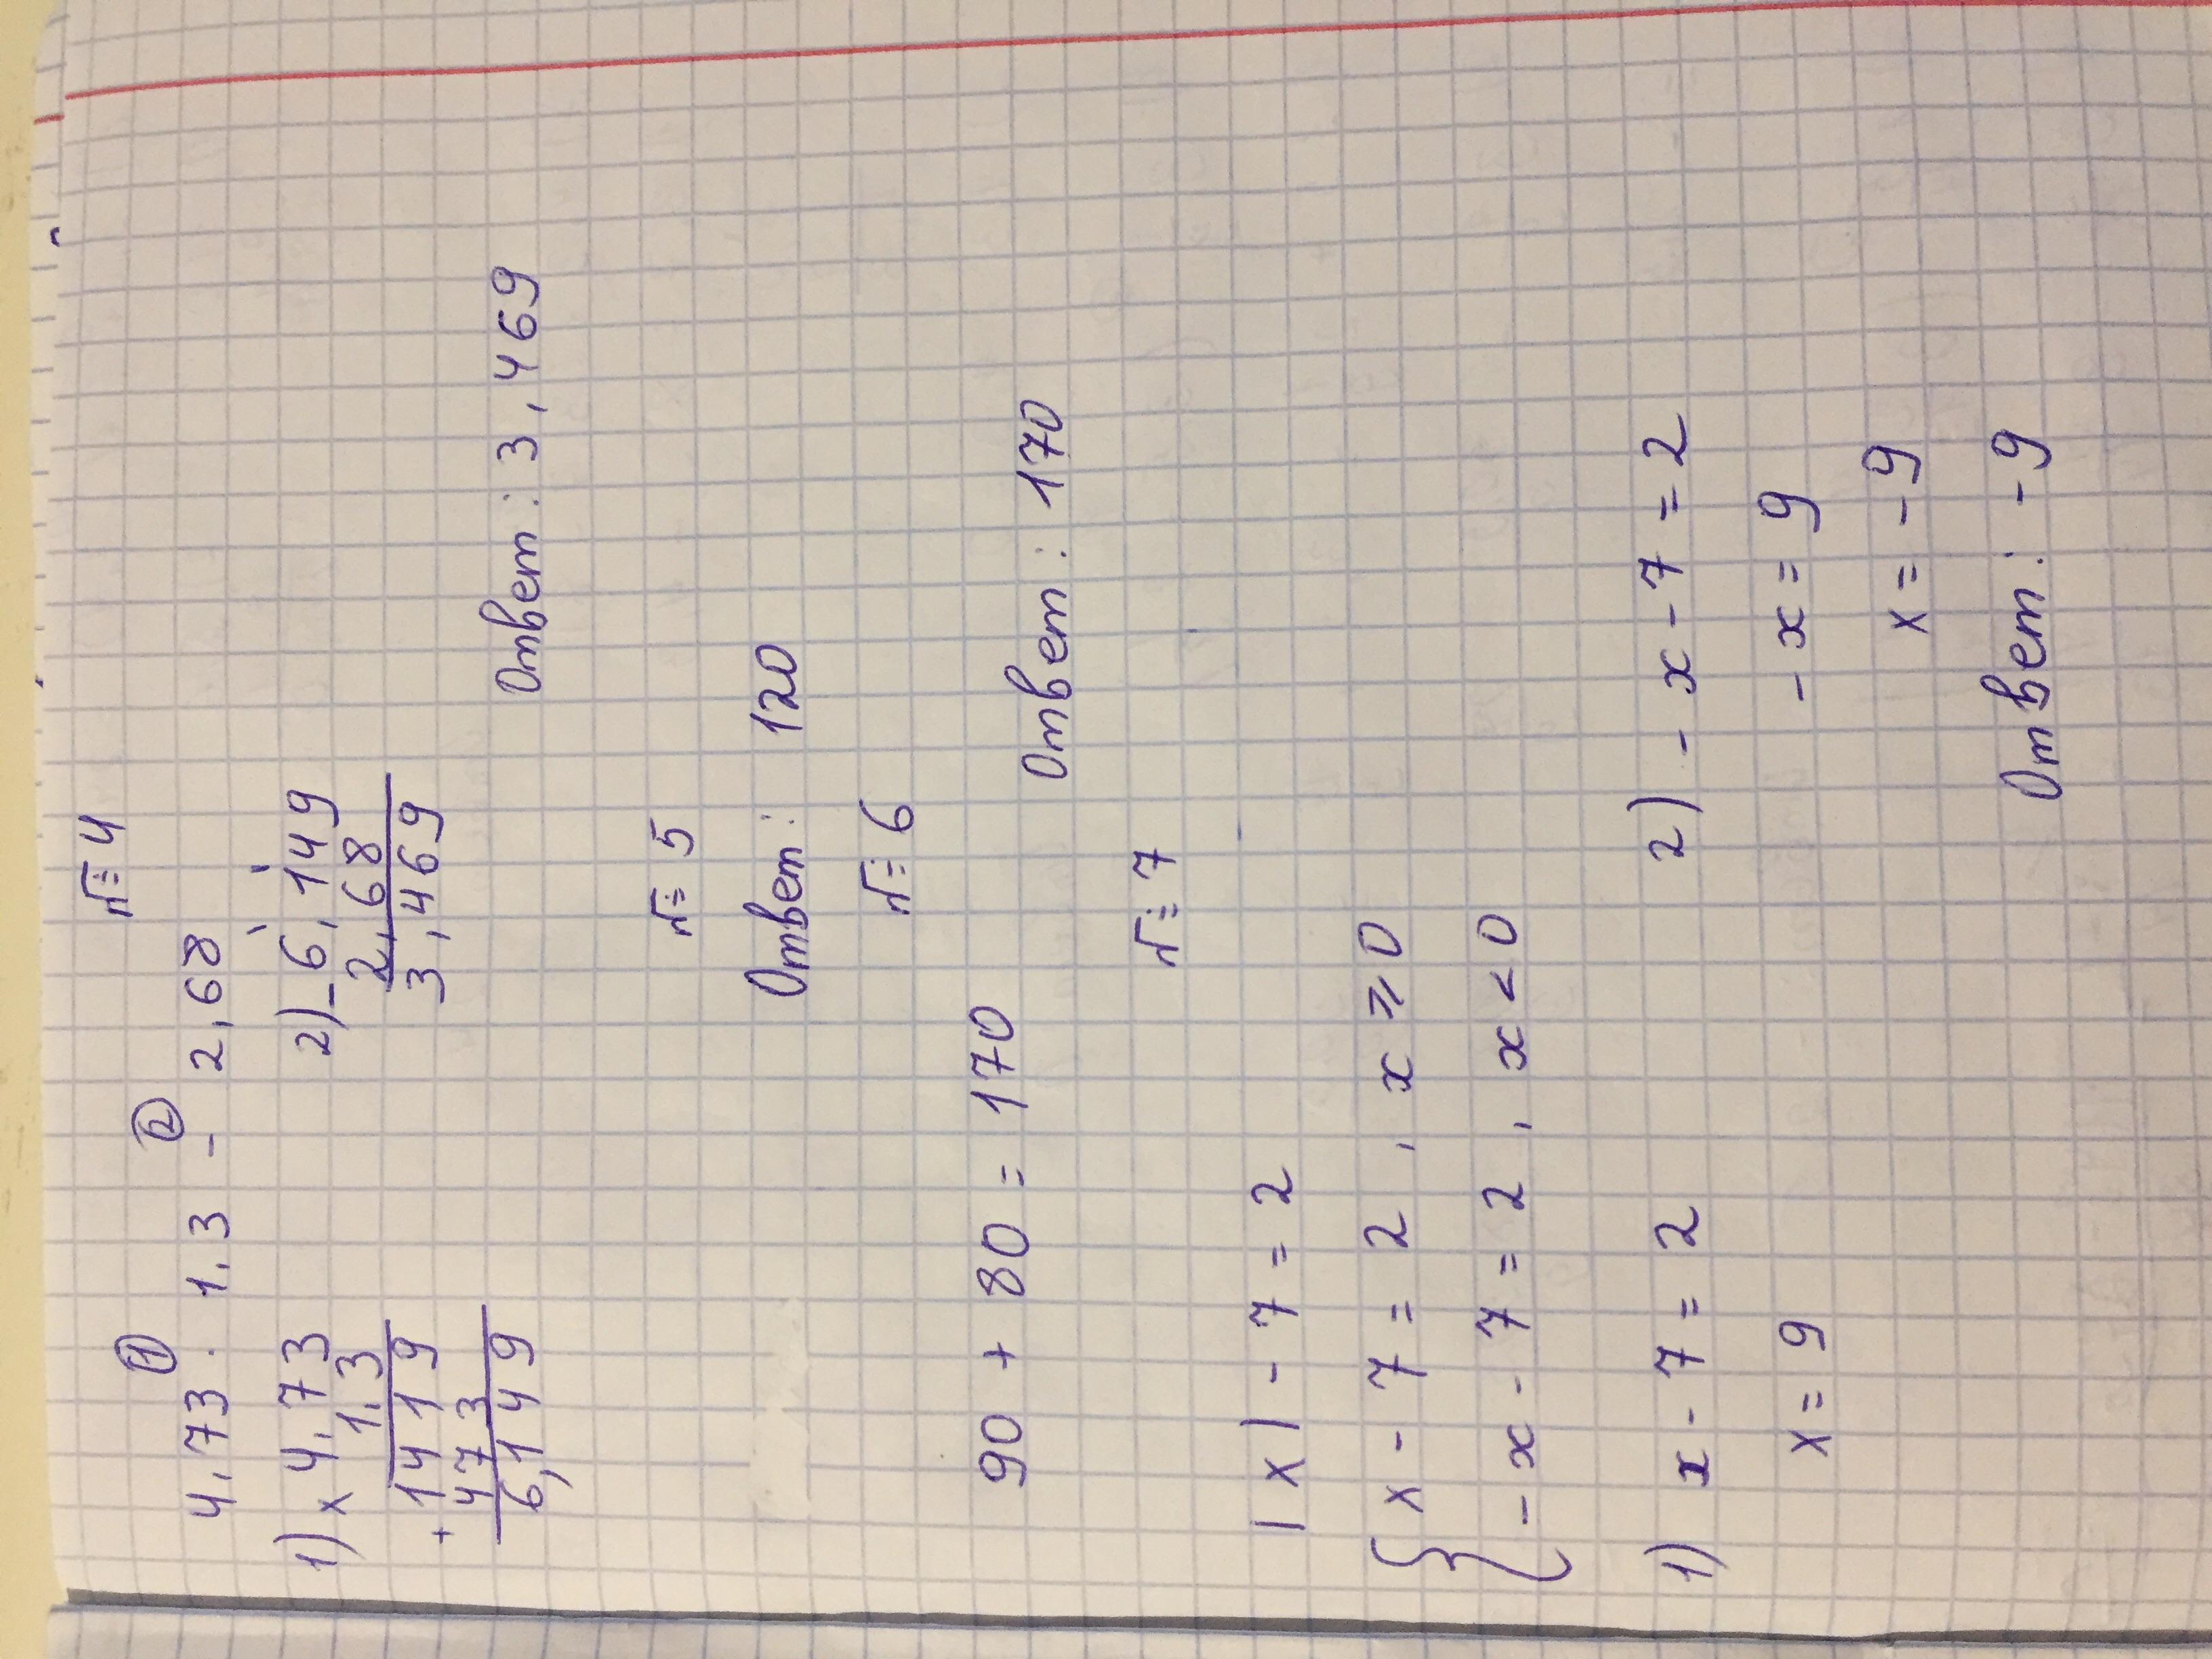 № 4
① ②
4,73 · 1,3 - 2,68
1) × 4,73 2) - 6,149
1,3 2,68
+ 1419 3,469
473
6,149
Ответ: 3,469
№ 5
Ответ: 120
№ 6
90 + 80 = 170
Ответ: 170
№ 7
|x| - 7 = 2
{ x - 7 = 2, x ⩾ 0
- x - 7 = 2, x < 0
1) x - 7 = 2 2) - x - 7 = 2
x = 9 - x = 9
x = - 9
Ответ: - 9